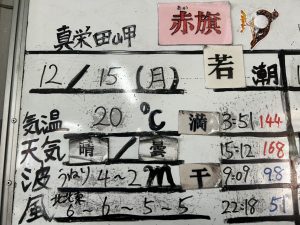 真栄田岬 赤旗
12/15(月) 若潮
気温 20℃ 満 3:51 144
天気 晴/曇 15:12 168
波 うねり4~2m 干 9:09 98
風 北北東 6~6~5~5 22:18 51